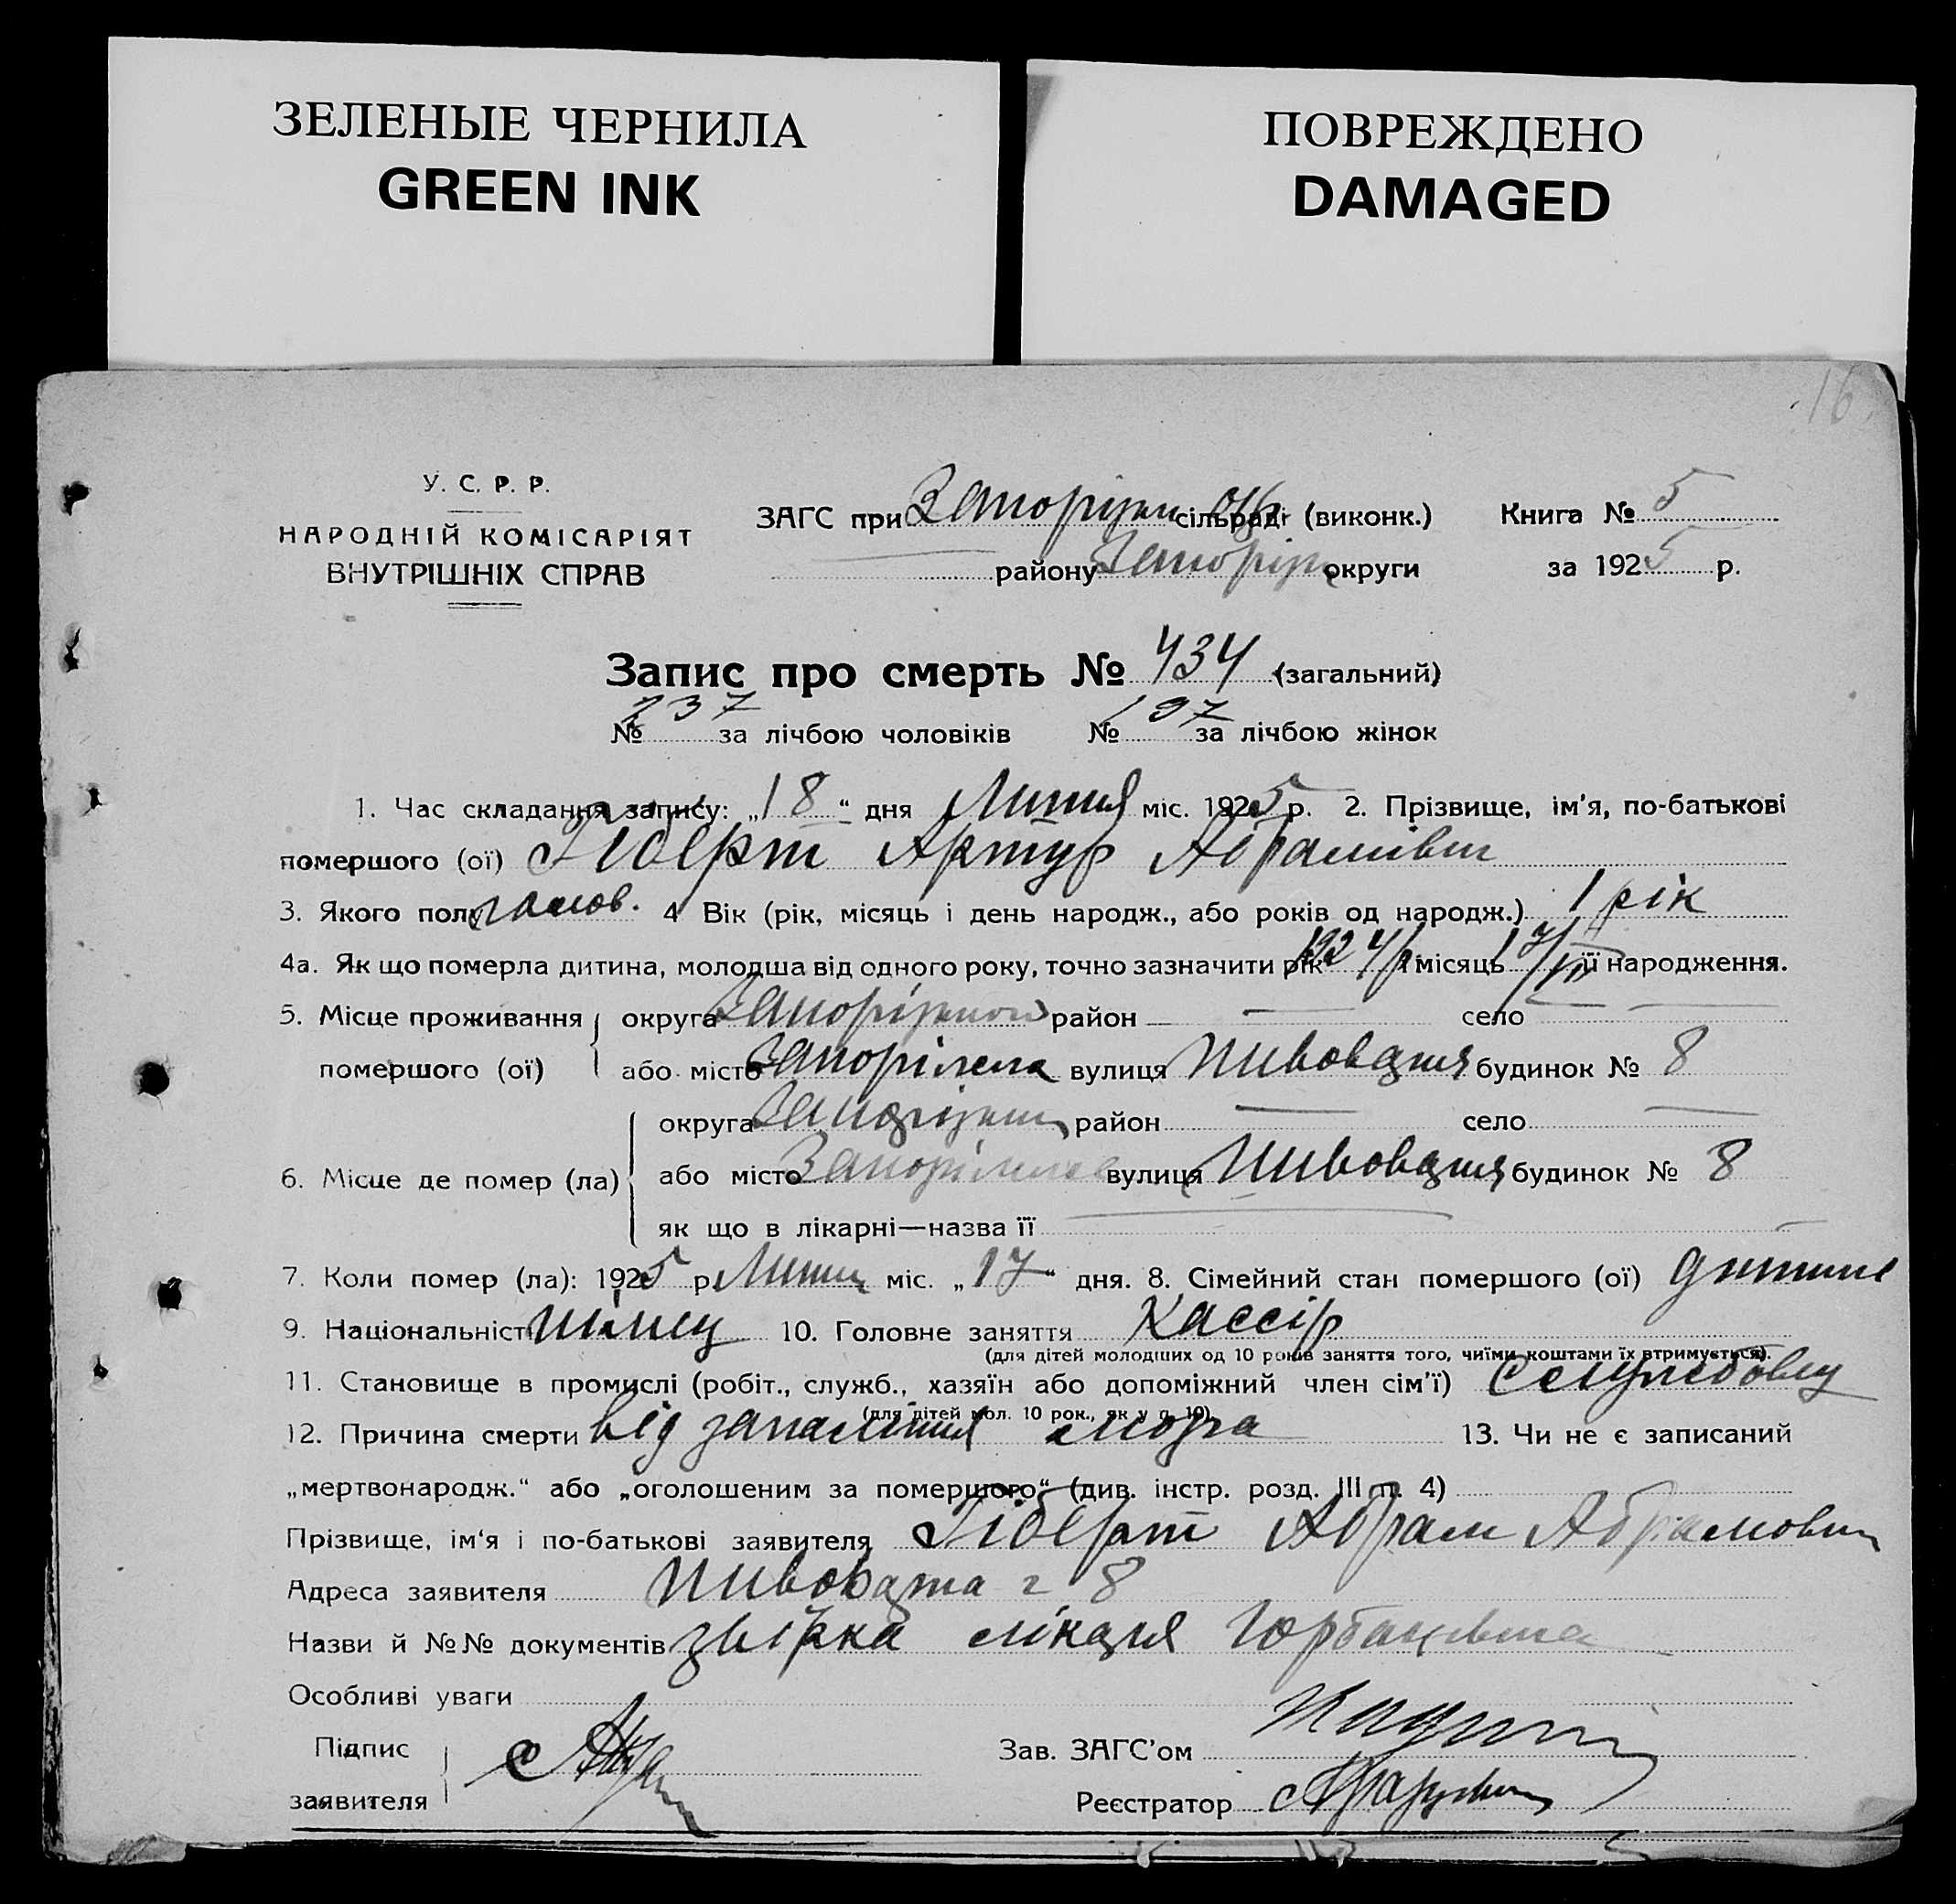 ЗЕЛЕНЫЕ ЧЕРНИЛА
GREEN INK
ПОВРЕЖДЕНО
DAMAGED
16
У. С. Р. Р.
НАРОДНІЙ КОМІСАРІЯТ
ВНУТРІШНІХ СПРАВ
ЗАГС при Запорізьк сільраді (виконк.)
району Запоріз округи
Книга № 5
за 1925 р.
Запис про смерть № 434 (загальний)
№ 237 за лічбою чоловіків № 197 за лічбою жінок
1. Час складання запису: „18“ дня Липня міс. 1925 р. 2. Прізвище, ім'я, по-батькові
помершого (ої) Гіберт Артур Абрамівич
3. Якого полу чолов. 4 Вік (рік, місяць і день народж., або років од народж.) 1 рік
4а. Як що померла дитина, молодша від одного року, точно зазначити рік 1924 р місяць 17/VII її народження.
5. Місце проживання округа Запорізької район — село —
помершого (ої) або місто Запоріжжя вулиця будинок № 8
округа район — село —
6. Місце де помер (ла) або місто Запоріжжя вулиця будинок № 8
як що в лікарні—назва її —
7. Коли помер (ла): 1925 р. Липня міс. „17“ дня. 8. Сімейний стан помершого (ої) дитина
9. Національність німець 10. Головне заняття Кассір
(для дітей молодших од 10 років заняття того, чиїми коштами їх втримується).
11. Становище в промислі (робіт., служб., хазяїн або допоміжний член сім'ї)
(для дітей мол. 10 рок., як у п. 10)
12. Причина смерти від запалення мозга 13. Чи не є записаний
„мертвонародж.“ або „оголошеним за помершого“ (див. інстр. розд. III п. 4)
Прізвище, ім'я і по-батькові заявителя Гіберт Абрам Абрамович
Адреса заявителя 8
Назви й №№ документів лікаря
Особливі уваги
Підпис
заявителя
Зав. ЗАГС'ом
Реєстратор